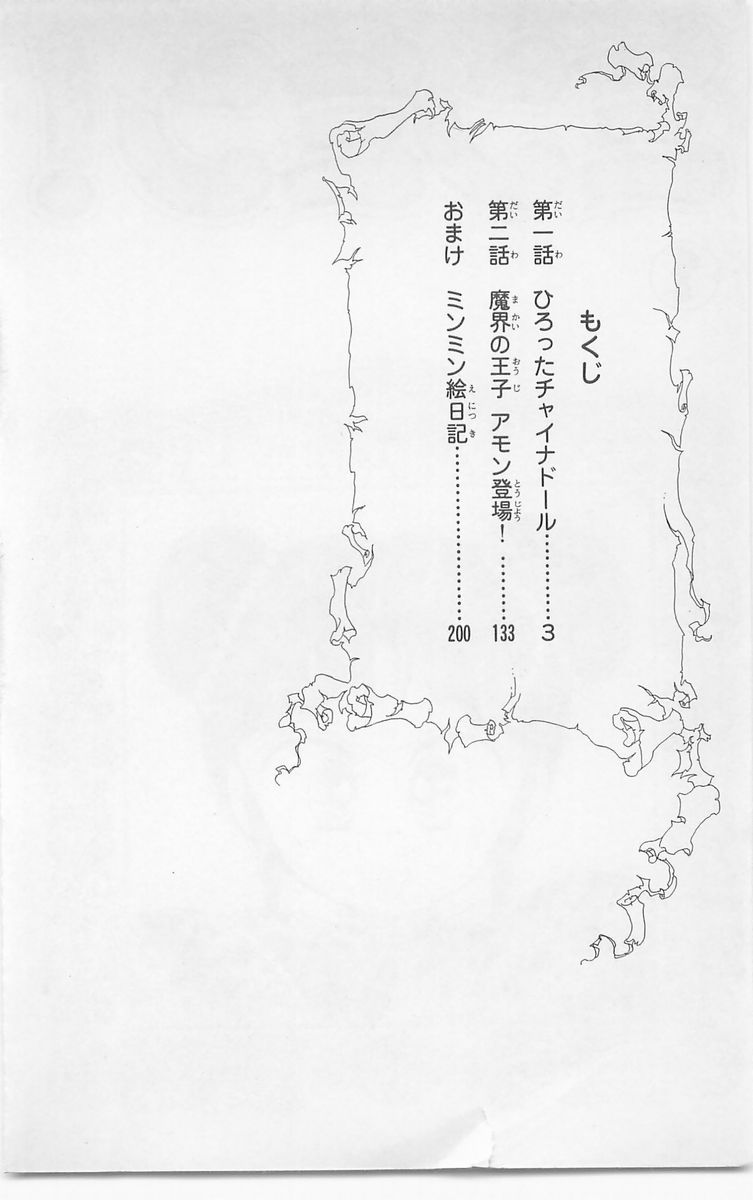 もくじ
第一話 ひろったチャイナドール…………3
第二話 魔界の王子 アモン登場！…………133
おまけ ミンミン絵日記……………………200